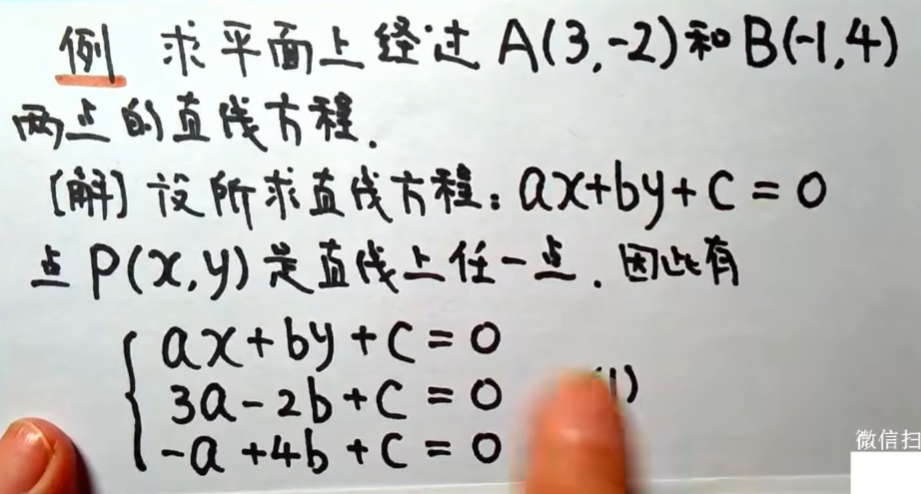 例 求平面上经过A(3,-2)和B(-1,4)
两点的直线方程.
[解] 设所求直线方程:ax+by+c=0
点P(x,y)是直线上任一点.因此有
ax+by+c=0
3a-2b+c=0
1)
-a+4b+c=0
微信扫